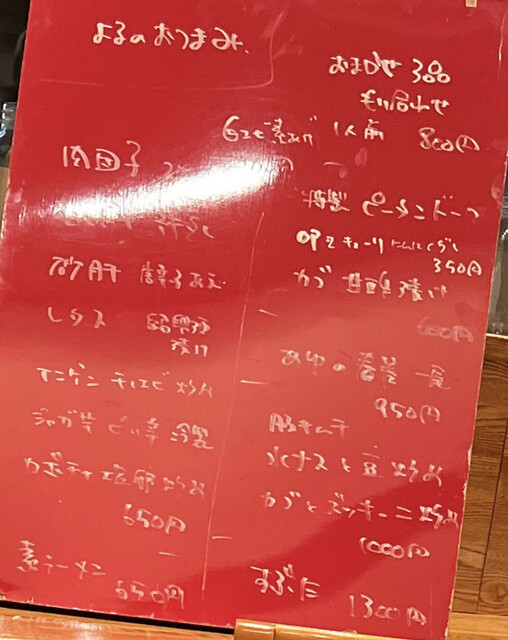 よるのおつまみ
おまかせ 3品
もり合わせ
白エビ素あげ 1人前 800円
肉団子
特製 ピータンドーフ
叩きキューリ
350円
砂肝 辛子あえ
カブ 甘酢漬け
レタス 紹興酒
漬け
600円
インゲン 干しエビ炒め
あゆの春巻 一尾
950円
ジャガ芋 冷製
豚キムチ
カボチャ 塩卵炒め
水ナスと豆 炒め
カブとズッキーニ炒め
650円
1000円
素ラーメン 650円
すぶた
1300円